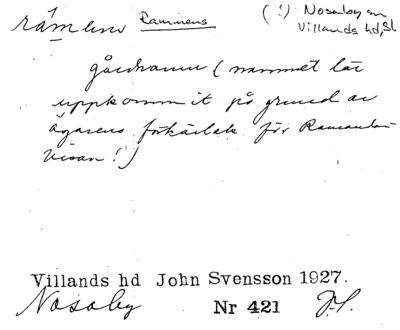 råmens Rammens (!) Nosaby sn
Villands hd, Sk
gårdnamn (namnet lär
uppkommit på grund av
ägarens förkärlek för Ramunder
visan!)
Villands hd John Svensson 1927.
Nosaby Nr 421 J.S.